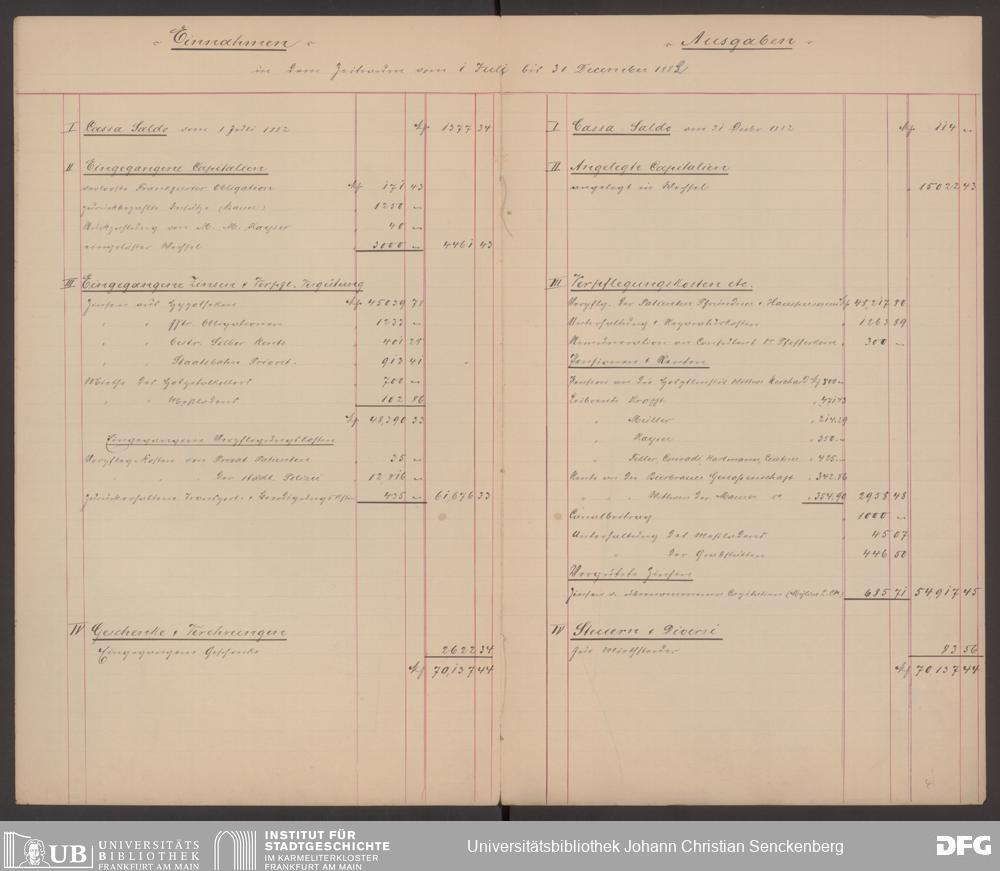 Einnahmen
in dem Zeitraum vom 1 Juli bis 31 December 1882
I Cassa Saldo vom 1 Juli 1882 M 1377 34
II Eingegangene Capitalien
verlooste Frankfurter Obligation M 171 43
zurückbezahlte Insätze 1250 "
Rückzahlung von M. M. Kayser 40 "
eingelöster Wechsel 3000 " 4461 43
III Eingegangene Zinsen + Verpfl. Vergütung
Zinsen aus Hypotheken M 45039 78
" " fftr. Obligationen 1233 "
" " Oestr. Silber Rente 401 28
" " Staatsbahn Priorit. 913 41
Miethe des Hospitalkellers 700 "
" " 102 86
M 48,390 33
Eingegangene Verpflegungskosten
Verpfleg. Kosten von Privat Patienten 35 "
" " der städt. Polizei 12,816 "
Zurückerhaltene Transport- + Beerdigungskosten 435 " 61,676 33
IV Geschenke + Verehrungen
Eingegangene Geschenke 2622 34
M 70,137 44
Ausgaben
I. Cassa-Saldo am 31 Decbr. 1882 M 114 "
II. Angelegte Capitalien
angelegt in Wechsel 15022 43
III Verpflegungskosten etc.
Verpfleg. der Patienten Pfründner + Hauspersonal M 45,217 80
Unterhaltung + Reparaturkosten 1263 89
Remuneration an Consulent Dr Pfefferkorn 300 "
Pensionen + Renten
Pension an die Wittwe M 800 "
Leibrente Krafft 471.43
" Müller 214.29
" Kayser 350."
" Feller, Conradi, Hartmann, 425."
Rente an die Bierbrauer Genossenschaft 342.86
" " " Wittwen der Maurer do 354.90 2958 48
Canalbeitrag 1000 "
Unterhaltung des 45 07
" der Grabstätten 446 50
Vergütete Zinsen
Zinsen v. übernommenen Capitalien 685 71 54917 45
IV Steuern + Diversi
für Miethsteuer 83 56
M 70,137 44
UB UNIVERSITÄTS
BIBLIOTHEK
FRANKFURT AM MAIN
INSTITUT FÜR
STADTGESCHICHTE
IM KARMELITERKLOSTER
FRANKFURT AM MAIN
Universitätsbibliothek Johann Christian Senckenberg
DFG